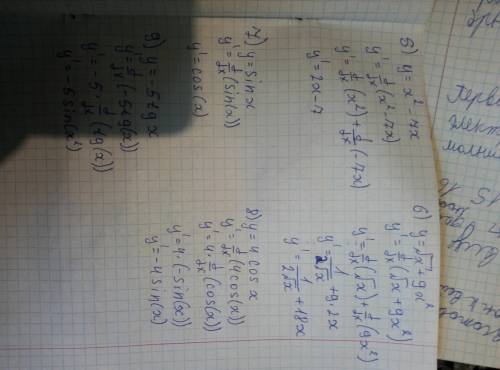 5) y = x² - 7x
y' = d/dx (x² - 7x)
y' = d/dx (x²) + d/dx (-7x)
y' = 2x - 7
6) y = √x + 9x²
y' = d/dx (√x + 9x²)
y' = d/dx (√x) + d/dx (9x²)
y' = 1/2√x + 9 · 2x
y' = 1/2√x + 18x
7) y = sin x
y' = d/dx (sin(x))
y' = cos(x)
8) y = 4 cos x
y' = d/dx (4 cos(x))
y' = 4 · d/dx (cos(x))
y' = 4 · (-sin(x))
y' = -4 sin(x)
9) y = -5 tg x
y' = d/dx (-5 tg(x))
y' = -5 · d/dx (tg(x))
y' = -5 sin(x²)
15 16